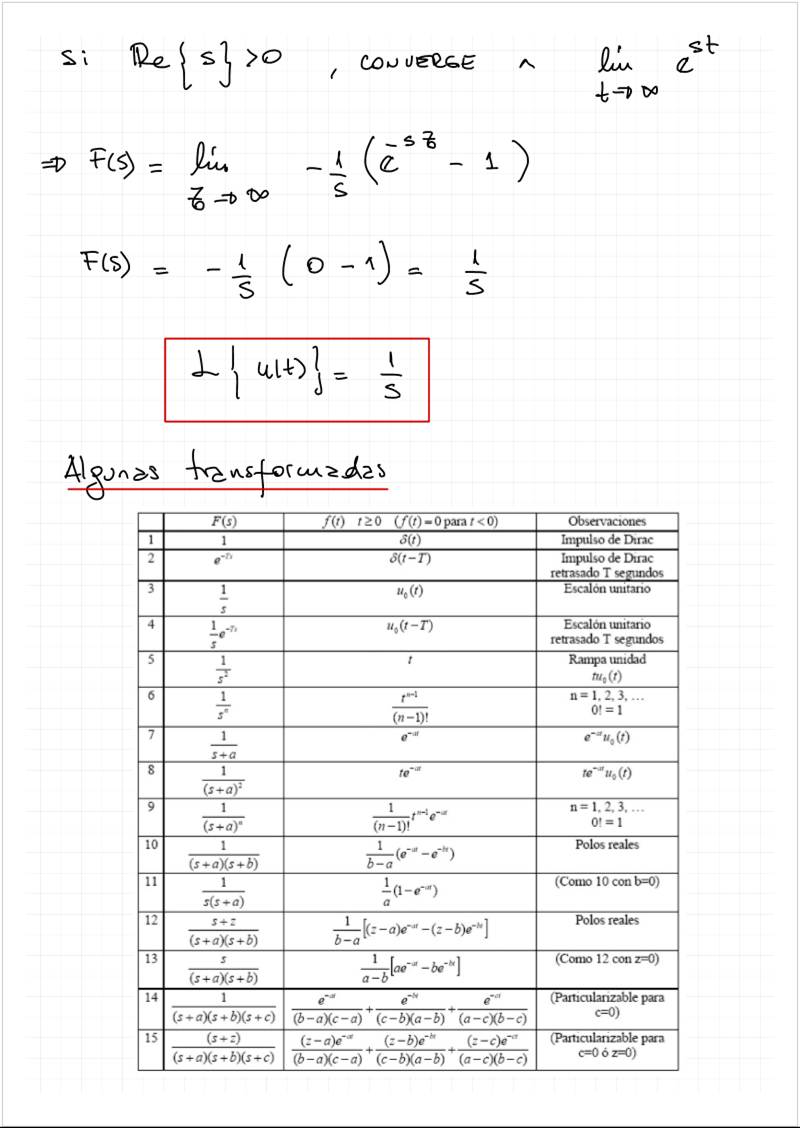 si Re{s}>0 , CONVERGE ^ lim e^st
t→∞
⇒ F(s) = lim -1/s (e^-sz - 1)
z→∞
F(s) = -1/s (0 - 1) = 1/s
L{u(t)} = 1/s
Algunas transformadas
F(s) f(t) t≥0 (f(t)=0 para t<0) Observaciones
1 1 δ(t) Impulso de Dirac
2 e^-Ts δ(t-T) Impulso de Dirac
retrasado T segundos
3 1/s u₀(t) Escalón unitario
4 1/s e^-Ts u₀(t-T) Escalón unitario
retrasado T segundos
5 1/s² t Rampa unidad
tu₀(t)
6 1/sⁿ t^n-1/(n-1)! n = 1, 2, 3, …
0! = 1
7 1/(s+a) e^-at e^-at u₀(t)
8 1/(s+a)² te^-at te^-at u₀(t)
9 1/(s+a)ⁿ 1/(n-1)! t^n-1 e^-at n = 1, 2, 3, …
0! = 1
10 1/(s+a)(s+b) 1/(b-a) (e^-at - e^-bt) Polos reales
11 1/s(s+a) 1/a (1-e^-at) (Como 10 con b=0)
12 s+z/(s+a)(s+b) 1/(b-a) [(z-a)e^-at -(z-b)e^-bt] Polos reales
13 s/(s+a)(s+b) 1/(a-b) [ae^-at - be^-bt] (Como 12 con z=0)
14 1/(s+a)(s+b)(s+c) e^-at/(b-a)(c-a) + e^-bt/(c-b)(a-b) + e^-ct/(a-c)(b-c) (Particularizable para
c=0)
15 (s+z)/(s+a)(s+b)(s+c) (z-a)e^-at/(b-a)(c-a) + (z-b)e^-bt/(c-b)(a-b) + (z-c)e^-ct/(a-c)(b-c) (Particularizable para
c=0 ó z=0)